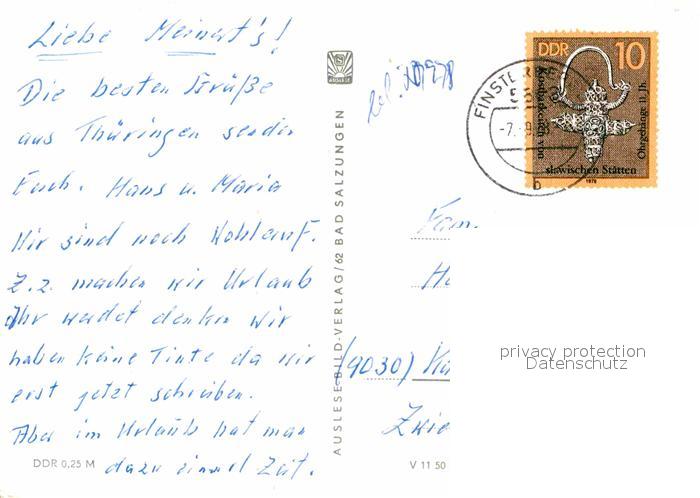 Liebe Meinert's!
Die besten Grüße
aus Thüringen senden
Euch. Hans u. Maria
Wir sind noch Wohlauf.
Z.Z. machen wir Urlaub
Ihr werdet denken Wir
haben keine Tinte da wir
erst jetzt schreiben.
Aber im Urlaub hat man
dazu einmal Zeit.
DDR 0,25 M
AUSLESE
AUSLESE-BILD-VERLAG/62 BAD SALZUNGEN
V 11 50
1978
DDR 10
Ohrgehänge 11. Jh.
slawischen Stätten
1978
FINSTERBE
b
Fam.
(9030)
privacy protection
Datenschutz